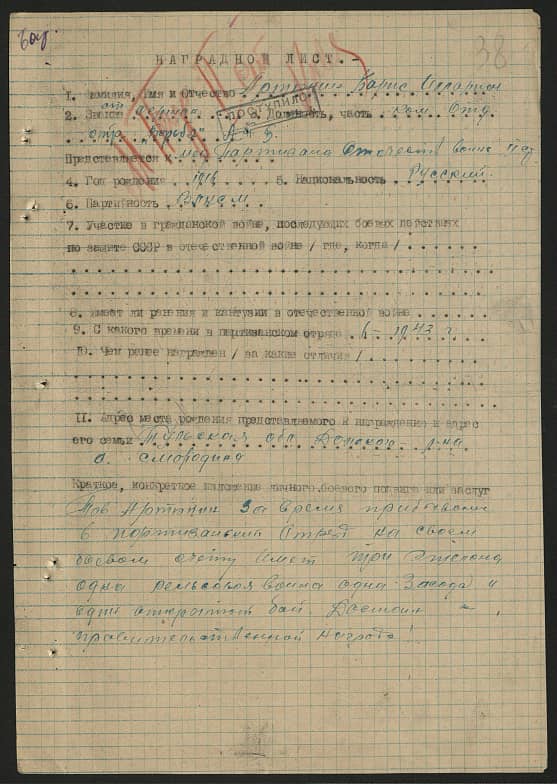 38
НАГРАДНОЙ ЛИСТ.-
1. Фамилия, имя и Отчество Борис
ПОСТУПИЛО
2. Звание 3. Должность, часть ком. Отд.
отр.
Представляется к мед Партизана Отечест войны II ст
4. Год рождения 1916 5. Национальность Русский
6. Партийность
7. Участие в гражданской войне, последующих боевых действиях
по защите СССР в отечественной войне / где, когда /
8. Имеет ли ранения и контузии в отечественной войне
9. С какого времени в партизанском отряде 1943 г
10. Чем ранее награжден / за какие отличия /
11. Адрес места рождения представляемого к награждению и адрес
его семьи Тульская обл Донской р-на
д. Смородино
Краткое, конкретное изложение личного, боевого подвига или заслуг
Тов за время пребывания
в партизанский Отряд на своем
боевом счету имеет три Эшелона
одна рельсовая война одна Засада и
один открытый бой. Достоин
правительственной награды!